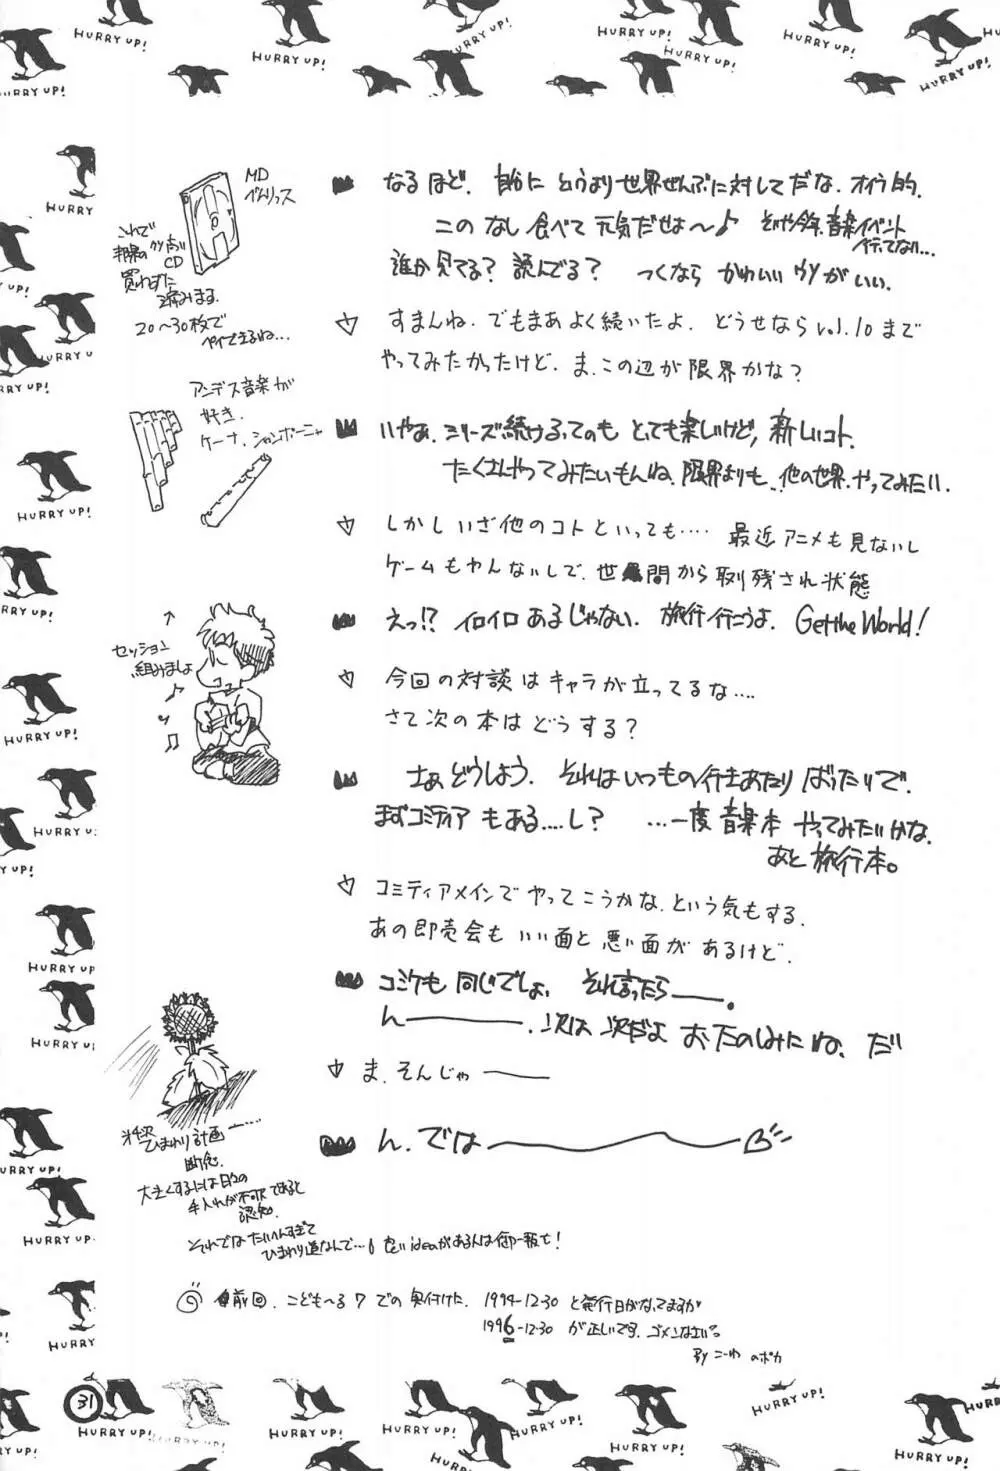 HURRY UP!
HURRY UP!
HURRY UP!
HURRY UP!
HURRY UP!
HURRY UP!
HURRY UP!
なるほど. 自分に というより世界ぜんぶに対してだな. オイラ的.
このなし食べて元気だせよ〜♪ そいや今年、音楽イベント
行ってない…
誰か見てる? 読んでる? つくなら かわいいウソがいい.
すまんね. でもまあよく続いたよ. どうせなら vol.10まで
やってみたかったけど. ま.この辺が限界かな?
いやぁ. シリーズ続けるってのも とっても楽しいけど, 新しいコト.
たくさんやってみたいもんね. 限界よりも. 他の世界. やってみたい.
しかし いざ他のコトといっても…. 最近アニメも見ないし
ゲームもやんないしで. 世間から取り残され状態
えっ!? イロイロあるじゃない. 旅行行こうよ. Get the World!
今回の対談はキャラが立ってるな….
さて次の本はどうする?
さぁどうしよう. それはいつもの行きあたり ばったりで.
まずコミティアもある….し? …一度音楽本 やってみたいかな.
あと旅行本。
コミティアメインで やってこうかな. という気もする.
あの即売会も いい面と悪い面が あるけど.
コミケも同じでしょ. それ言ったら――.
ん――. 次は 次だよ おたのしみにね. だ
ま. そんじゃ――
ん. では――
MD
べんりっス
これで
CD
買わずに
済みまる.
20〜30枚で
ペイできるね…
アンデス音楽が
好き.
ケーナ. シャンポーニャ
セッション
組みましょ
ひまわり計画――….
断念.
大きくするには日々の
手入れが不可欠であると
認知.
それではたいへんすぎて
ひまわり道なんで… ideaがある人は御一報を!
前回. こども〜る7での奥付けた. 1994-12-30 と発行日がなってますが
1996-12-30 が正しいです. ゴメンなさい。
By こーわ のポカ
31
HURRY UP!
HURRY UP!
HURRY UP!
HURRY UP!
HURRY UP!
HURRY UP!